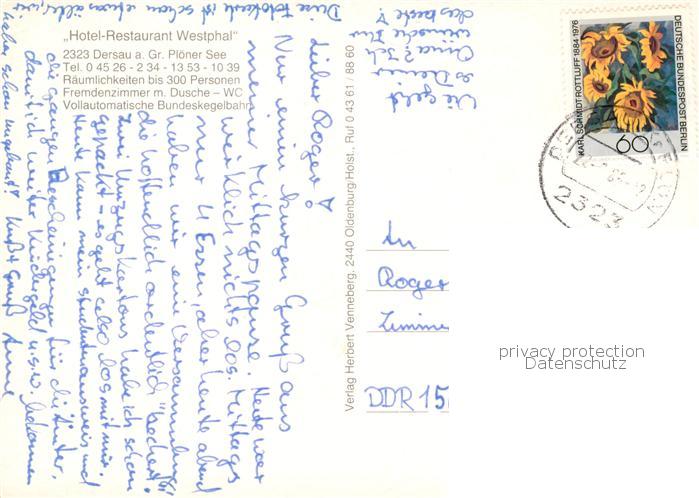 „Hotel-Restaurant Westphal"
2323 Dersau a. Gr. Plöner See
Tel. 0 45 26 - 2 34 - 13 53 - 10 39
Räumlichkeiten bis 300 Personen
Fremdenzimmer m. Dusche – WC
Vollautomatische Bundeskegelbahn
Verlag Herbert Venneberg, 2440 Oldenburg/Holst., Ruf 0 43 61 / 88 60
DEUTSCHE BUNDESPOST BERLIN
KARL SCHMIDT-ROTTLUFF 1884-1976
60
2323
Lieber Roger!
Nur einen kurzen Gruß aus
meiner Mittagspause. Heute war
wirklich nichts los. Mittags
nur 4 Essen, aber heute abend
haben wir eine Versammlung,
die hoffentlich ordentlich "bechert".
Zwei Umzugskartons habe ich schon
gepackt - es geht also los mit mir.
Heute kam mein Studentenausweis und
die ganzen Bescheinigungen für die Ämter,
damit ich weiter Kindergeld u.s.w. bekomme
Gruß Anne
Wie geht
es Deiner
Oma? Ich
wünsche ihr
das beste!
An
Roger
Zimme
DDR 15
privacy protection
Datenschutz